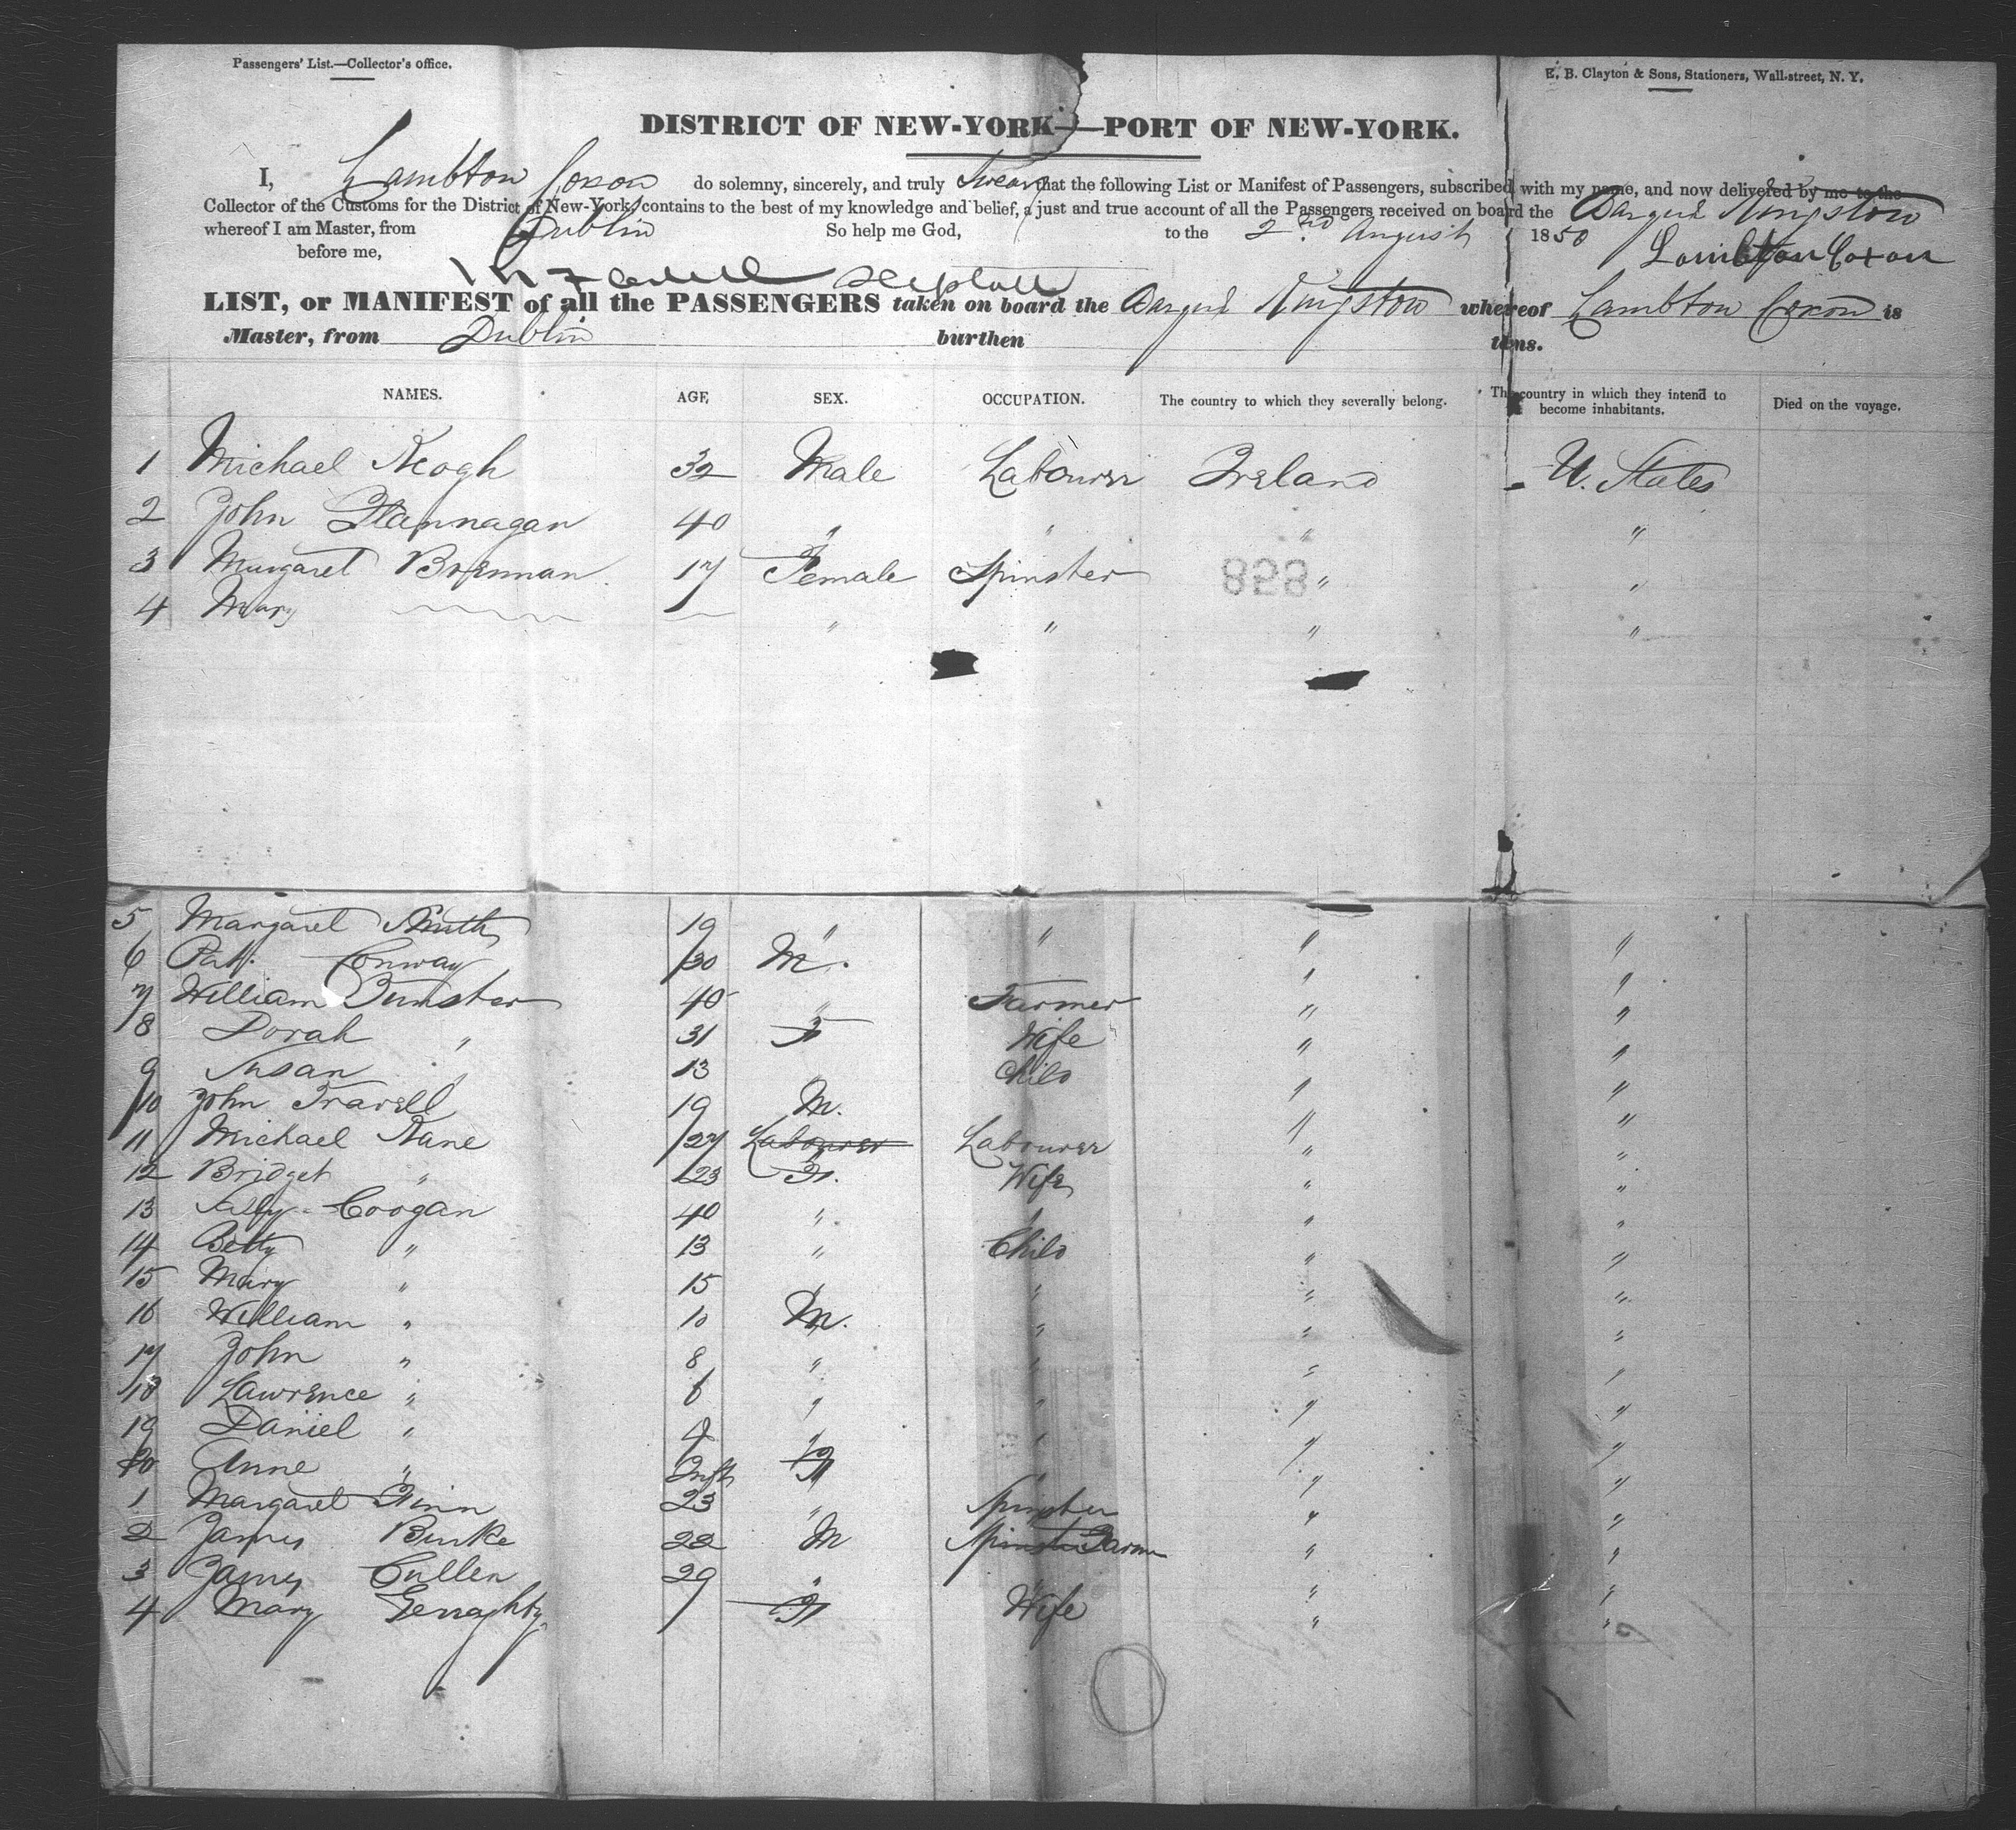 Passengers' List.—Collector's office.
E. B. Clayton & Sons, Stationers, Wall-street, N. Y.
DISTRICT OF NEW-YORK—PORT OF NEW-YORK.
I, Lambton Coxon do solemny, sincerely, and truly Swear that the following List or Manifest of Passengers, subscribed with my name, and now delivered by me to the
Collector of the Customs for the District of New-York, contains to the best of my knowledge and belief, a just and true account of all the Passengers received on board the Barque Kingston
whereof I am Master, from Dublin So help me God, to the 2nd August 1850
before me, Lambton Coxon
LIST, or MANIFEST of all the PASSENGERS taken on board the Barque Kingston whereof Lambton Coxon is
Master, from Dublin burthen tons.
NAMES. AGE, SEX. OCCUPATION. The country to which they severally belong. The country in which they intend to become inhabitants. Died on the voyage.
1 Michael Keogh 32 Male Labourer Ireland U. States
2 John Flannagan 40 " " " "
3 Margaret Brennan 17 Female Spinster " "
4 Mary " " " "
858
5 Margaret Smith 19 " " " "
6 Pat. Conway 30 M. " "
7 William Bumster 40 " Farmer " "
8 Dorah " 31 F Wife " "
9 Susan " 13 " Child " "
10 John Travell 19 M. " "
11 Michael Kane 27 Labourer Labourer " "
12 Bridget " 23 F. Wife " "
13 Ally Coogan 40 " " " "
14 Betty " 13 " Child " "
15 Mary " 15 " " " "
16 William " 10 M. " " "
17 John " 8 " " " "
18 Lawrence " 6 " " " "
19 Daniel " 4 " " " "
20 Anne " Inft F " " "
1 Margaret Finn 23 " Spinster " "
2 James Burke 22 M Spinster Farmer " "
3 James Cullen 29 " " " "
4 Mary Gerraghty F Wife " "